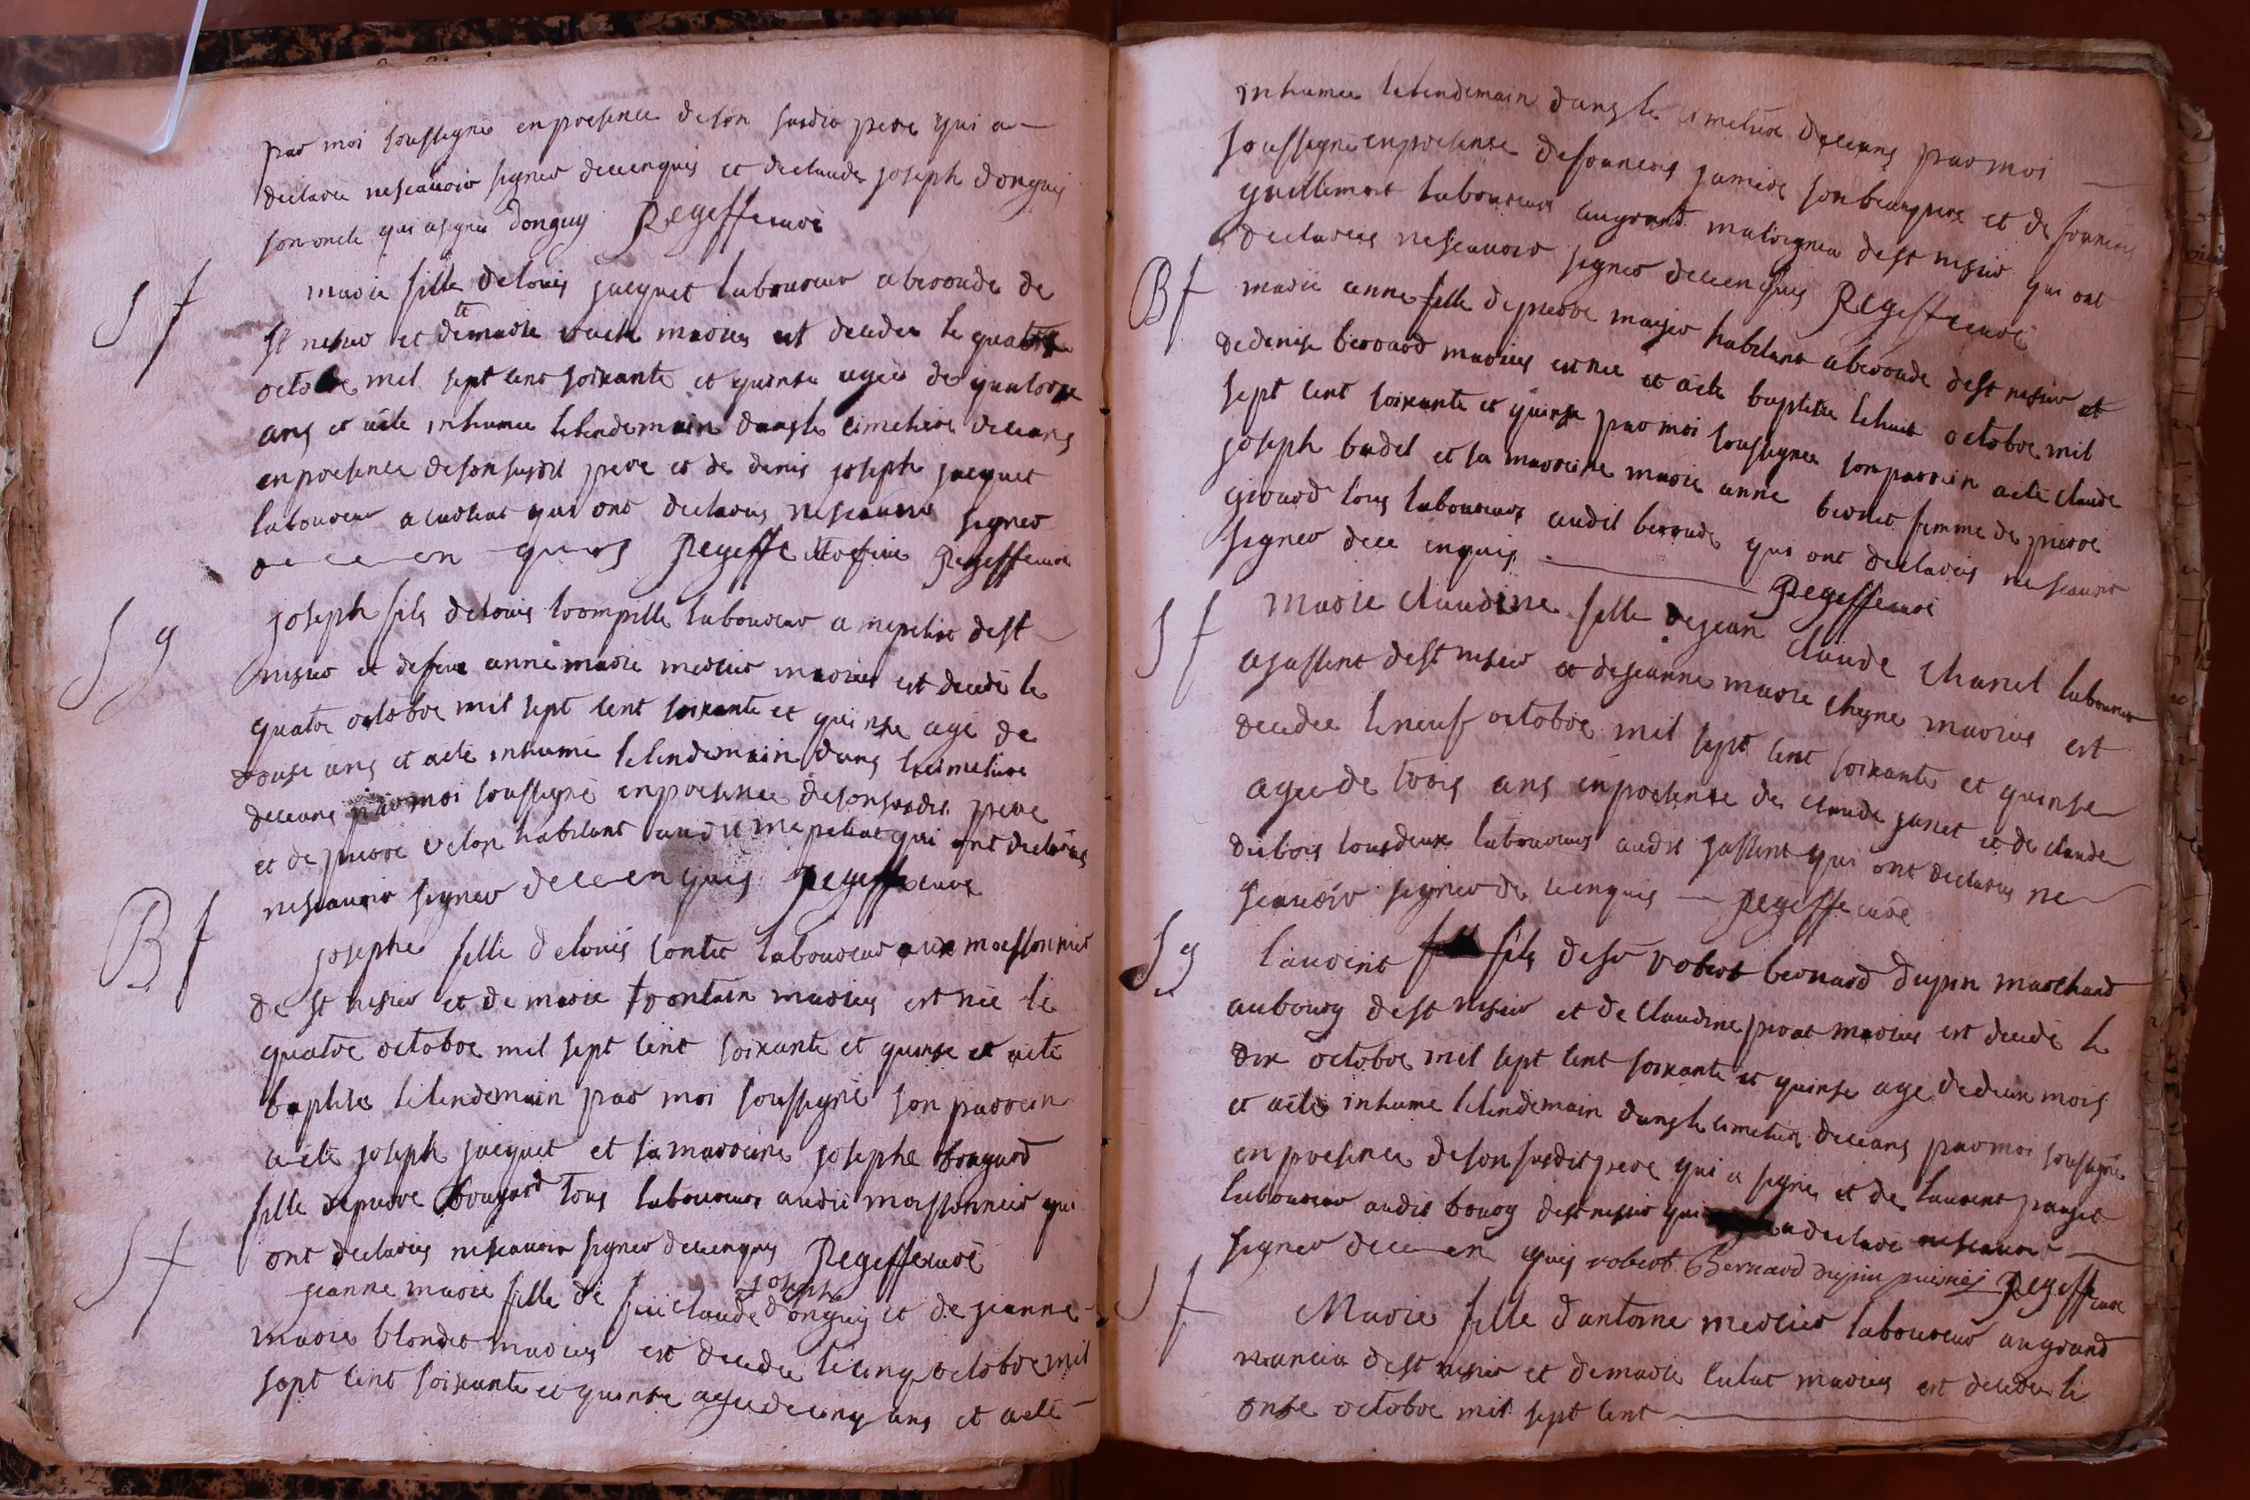 par moi soussigné en presence de son susdit pere qui a
declaré nescavoir signer de ce enquis et de claude joseph donguy
son oncle qui a signé Donguy Regeffe curé
S f
marie fille de louis jacquet laboureur a beroude de
St nisier et de marie mariés est decedée le quatre
octobre mil sept cent soixante et quinse agée de quatorse
ans et a été inhumée le lendemain dans le cimetiere de ceans
en presence de son susdit pere et de denis joseph jacquet
laboureur a qui ont declarés nescavoir signer
de ce en quis Regeffe Regeffe curé
S g
joseph fils de louis trompille laboureur a mepeliat de st
nisier et de feue anne marie mercier mariés est decedé le
quatre octobre mil sept cent soixante et quinse agé de
douse ans et a été inhumé le lendemain dans le cimetiere
de ceans par moi soussigné en presence de son susdit pere
et de pierre velon habitant audit mepeliat qui ont declarés
nescavoir signer de ce en quis Regeffe curé
B f
josephe fille de louis contet laboureur aux moissonnier
de st nisier et de marie frontain mariés est née le
quatre octobre mil sept cent soixante et quinse et a été
baptisée le lendemain par moi soussigné son parrein
a été joseph jacquet et sa marreine josephe bougard
fille de pierre bougard tous laboureurs audit moissonnier qui
ont declarés nescavoir signer de ce enquis Regeffe curé
S f
joseph
jeanne marie fille de feu claude donguy et de jeanne
marie blondet mariés est decedée le cinq octobre mil
sept cent soixante et quinse agée de cinq ans et a été
inhumée le lendemain dans le cimetiere de ceans par moi
soussigné en presence de francois jamere son beaupere et de francois
guillemot laboureurs au grand de st nisier qui ont
declarés nescavoir signer de ce enquis Regeffe curé
B f
marie anne fille de pierre mayer habitant a beroude de st nisier et
de denise berouard mariés est née et a été baptisée le huit octobre mil
sept cent soixante et quinse par moi soussigné son parrein a été claude
joseph badel et sa marreine marie anne bernet femme de pierre
girouard tous laboureurs audit beroude qui ont declarés nescavoir
signer de ce enquis Regeffe curé
S f
Marie claudine fille de jean Claude Chanel laboureur
a gassent de st nisier et de jeanne marie chyne mariés est
decedée le neuf octobre mil sept cent soixante et quinse
agée de trois ans en presence de claude janet et de claude
dubois tous deux laboureurs audit jassent qui ont declarés ne
scavoir signer de ce enquis Regeffe curé
S g
laurent fils de sr robert bernard dupin marchand
au bourg de st nisier et de claudine prat mariés est decedé le
dix octobre mil sept cent soixante et quinse agé de deux mois
et a été inhumé le lendemain dans le cimetiere de ceans par moi soussigné
en presence de son susdit pere qui a signé et de laurent pauget
laboureur audit bourg de st nisier qui a declaré nescavoir
signer de ce en quis robert Bernard dupin Regeffe curé
S f
Marie fille dantoine mercier laboureur au grand
de st nisier et de marie mariés est decedée le
onse octobre mil sept cent